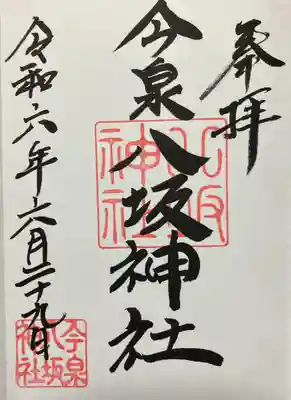 奉拝
今泉八坂神社
八坂神社
令和六年六月二十九日
今泉八坂神社